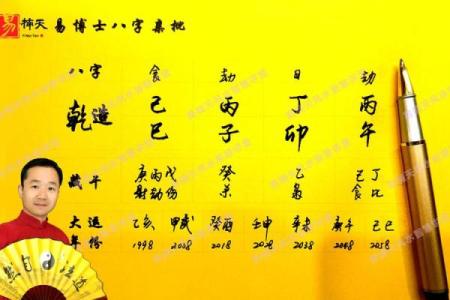 易博士八字集批
八字 食 劫 日 劫
乾造 己 丙 丁 丙
巳 子 卯 午
藏干 庚丙戊 癸 乙 己丁
财劫伤 杀 枭 食比
大运 乙亥 甲戌 癸酉 壬申 辛未 庚午 己巳
年份 1998 2008 2018 2028 2038 2048 2058